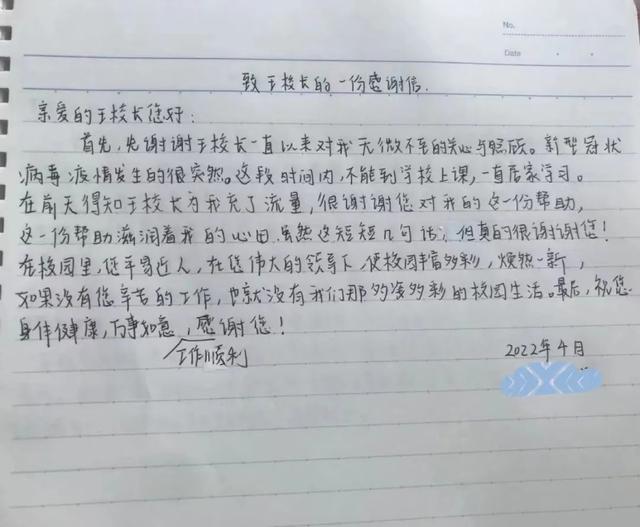 No.
Date
致王校长的一份感谢信.
亲爱的王校长您好:
首先,先谢谢王校长一直以来对我无微不至的关心与照顾。新型冠状
病毒疫情发生的很突然。这段时间内,不能到学校上课,一直居家学习。
在前天得知王校长为我充了流量,很谢谢您对我的这一份帮助,
这一份帮助滋润着我的心田.虽然这短短几句话,但真的很谢谢您!
在校园里,您平易近人,在您伟大的领导下,使校园丰富多彩,焕然一新,
如果没有您辛苦的工作,也就没有我们那多姿多彩的校园生活。最后,祝您
身体健康,万事如意,感谢您!
工作顺利
2022年4月